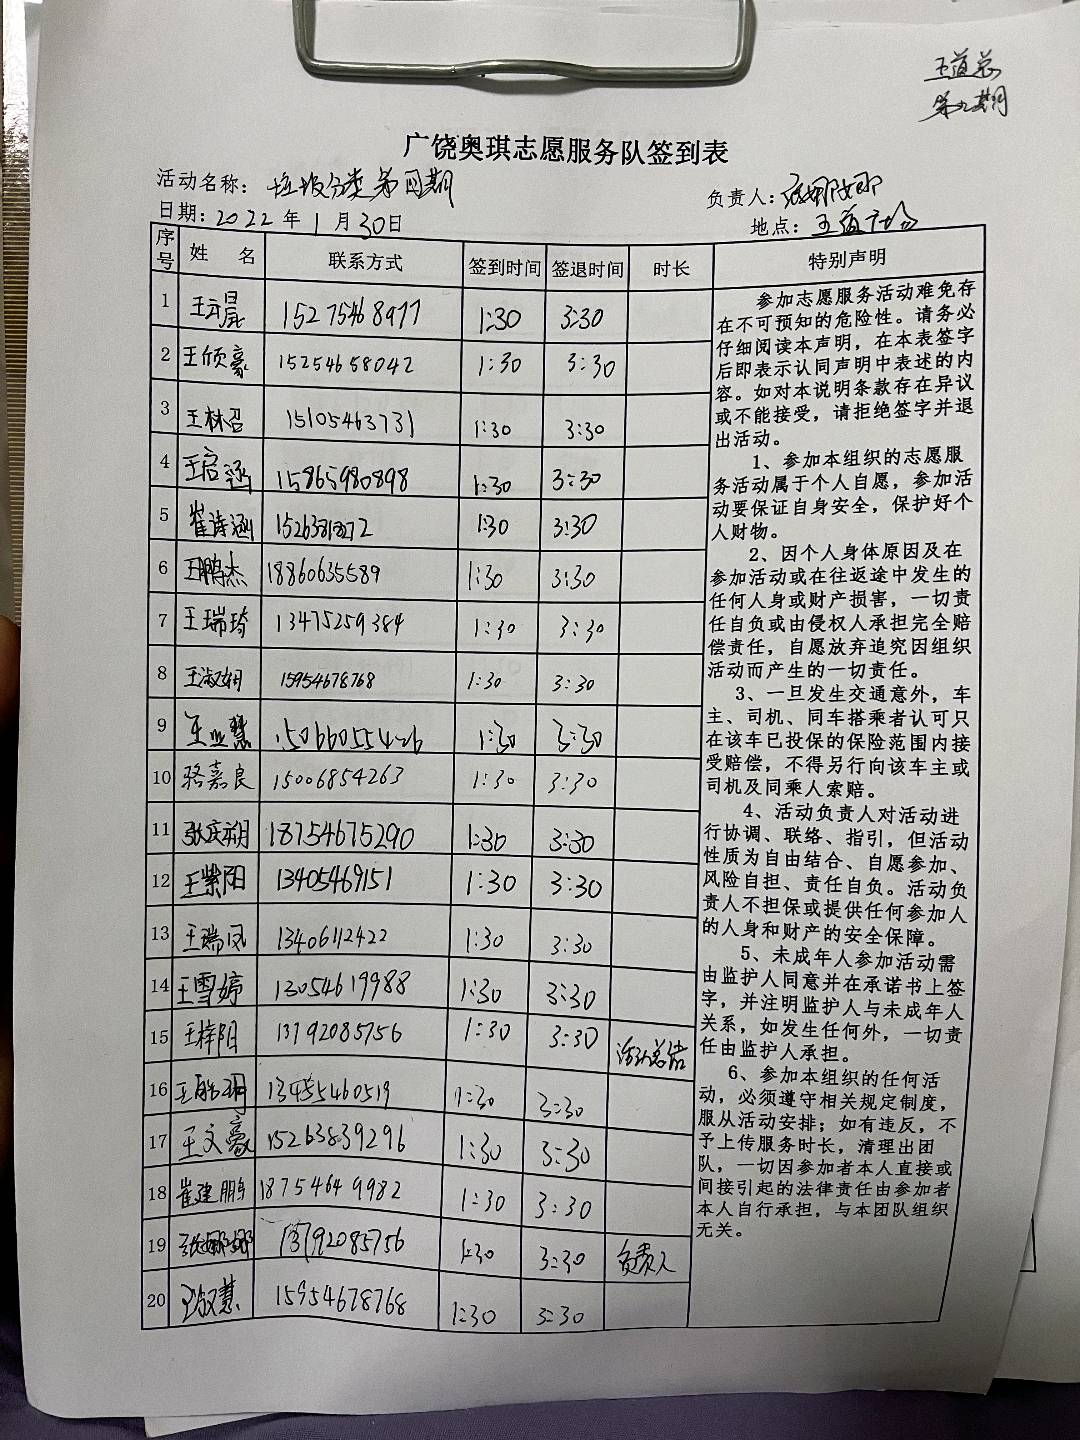 王道总
第九期
广饶奥琪志愿服务队签到表
活动名称: 垃圾分类第四期
负责人: 张娜娜
日期: 2022年1月30日
地点: 王道广场
序号 姓 名 联系方式 签到时间 签退时间 时长 特别声明
1 王云晨 15275468977 1:30 3:30
2 王欣豪 15254658042 1:30 3:30
3 王林召 15105463731 1:30 3:30
4 王启涵 15865980898 1:30 3:30
5 崔诗涵 1:30 3:30
6 王鹏杰 18860635589 1:30 3:30
7 王瑞琦 13475259384 1:30 3:30
8 王淑娟 15954678768 1:30 3:30
9 王亚慧 1:30 3:30
10 骆嘉良 15006854263 1:30 3:30
11 张庆朔 18754675290 1:30 3:30
12 王紫阳 13405469151 1:30 3:30
13 王瑞凤 13406112422 1:30 3:30
14 王雪婷 13054619988 1:30 3:30
15 王梓阳 13792085756 1:30 3:30 活动总结
16 王 13455460519 1:30 3:30
17 王文豪 15263839296 1:30 3:30
18 崔建鹏 18754649982 1:30 3:30
19 张娜娜 13792085756 1:30 3:30 负责人
20 王淑慧 15954678768 1:30 3:30
参加志愿服务活动难免存
在不可预知的危险性。请务必
仔细阅读本声明，在本表签字
后即表示认同声明中表述的内
容。如对本说明条款存在异议
或不能接受，请拒绝签字并退
出活动。
1、参加本组织的志愿服
务活动属于个人自愿，参加活
动要保证自身安全，保护好个
人财物。
2、因个人身体原因及在
参加活动或在往返途中发生的
任何人身或财产损害，一切责
任自负或由侵权人承担完全赔
偿责任，自愿放弃追究因组织
活动而产生的一切责任。
3、一旦发生交通意外，车
主、司机、同车搭乘者认可只
在该车已投保的保险范围内接
受赔偿，不得另行向该车主或
司机及同乘人索赔。
4、活动负责人对活动进
行协调、联络、指引，但活动
性质为自由结合、自愿参加、
风险自担、责任自负。活动负
责人不担保或提供任何参加人
的人身和财产的安全保障。
5、未成年人参加活动需
由监护人同意并在承诺书上签
字，并注明监护人与未成年人
关系，如发生任何外，一切责
任由监护人承担。
6、参加本组织的任何活
动，必须遵守相关规定制度，
服从活动安排；如有违反，不
予上传服务时长，清理出团
队，一切因参加者本人直接或
间接引起的法律责任由参加者
本人自行承担，与本团队组织
无关。